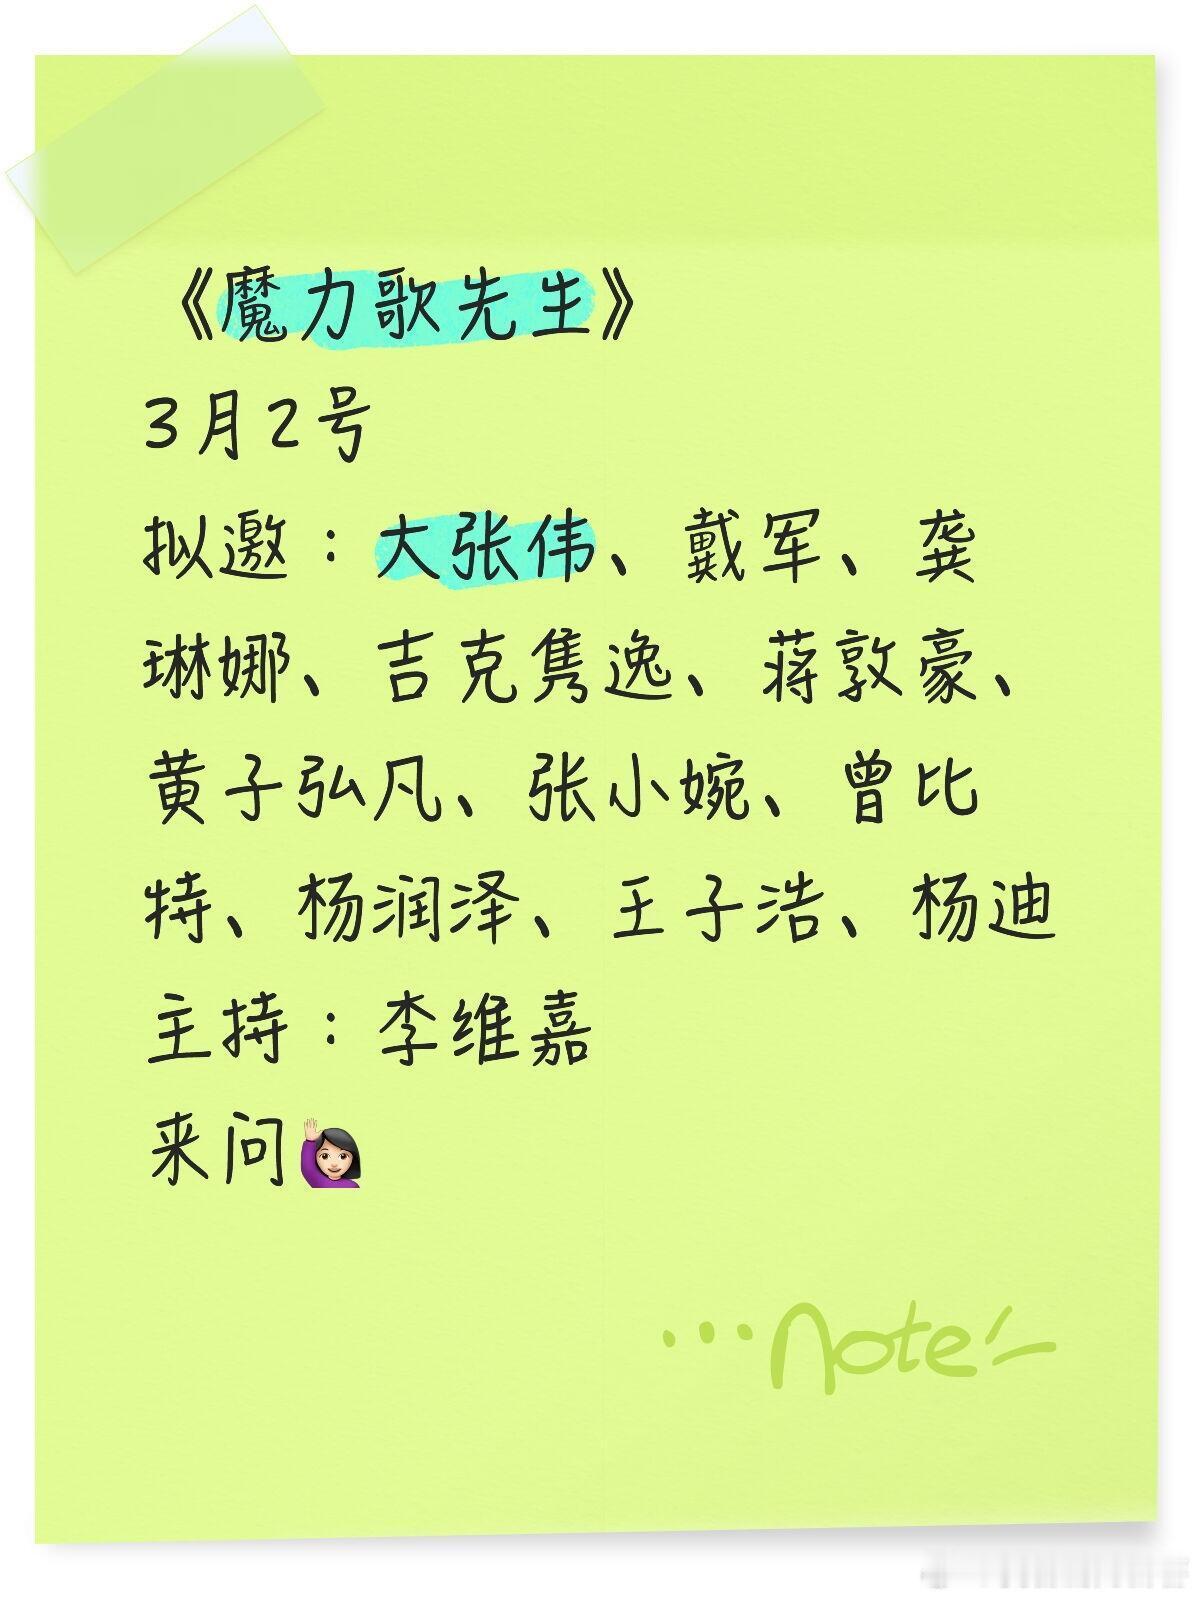 《魔力歌先生》
3月2号
拟邀：大张伟、戴军、龚
琳娜、吉克隽逸、蒋敦豪、
黄子弘凡、张小婉、曾比
特、杨润泽、王子浩、杨迪
主持：李维嘉
来问🙋🏻‍♀️
...note